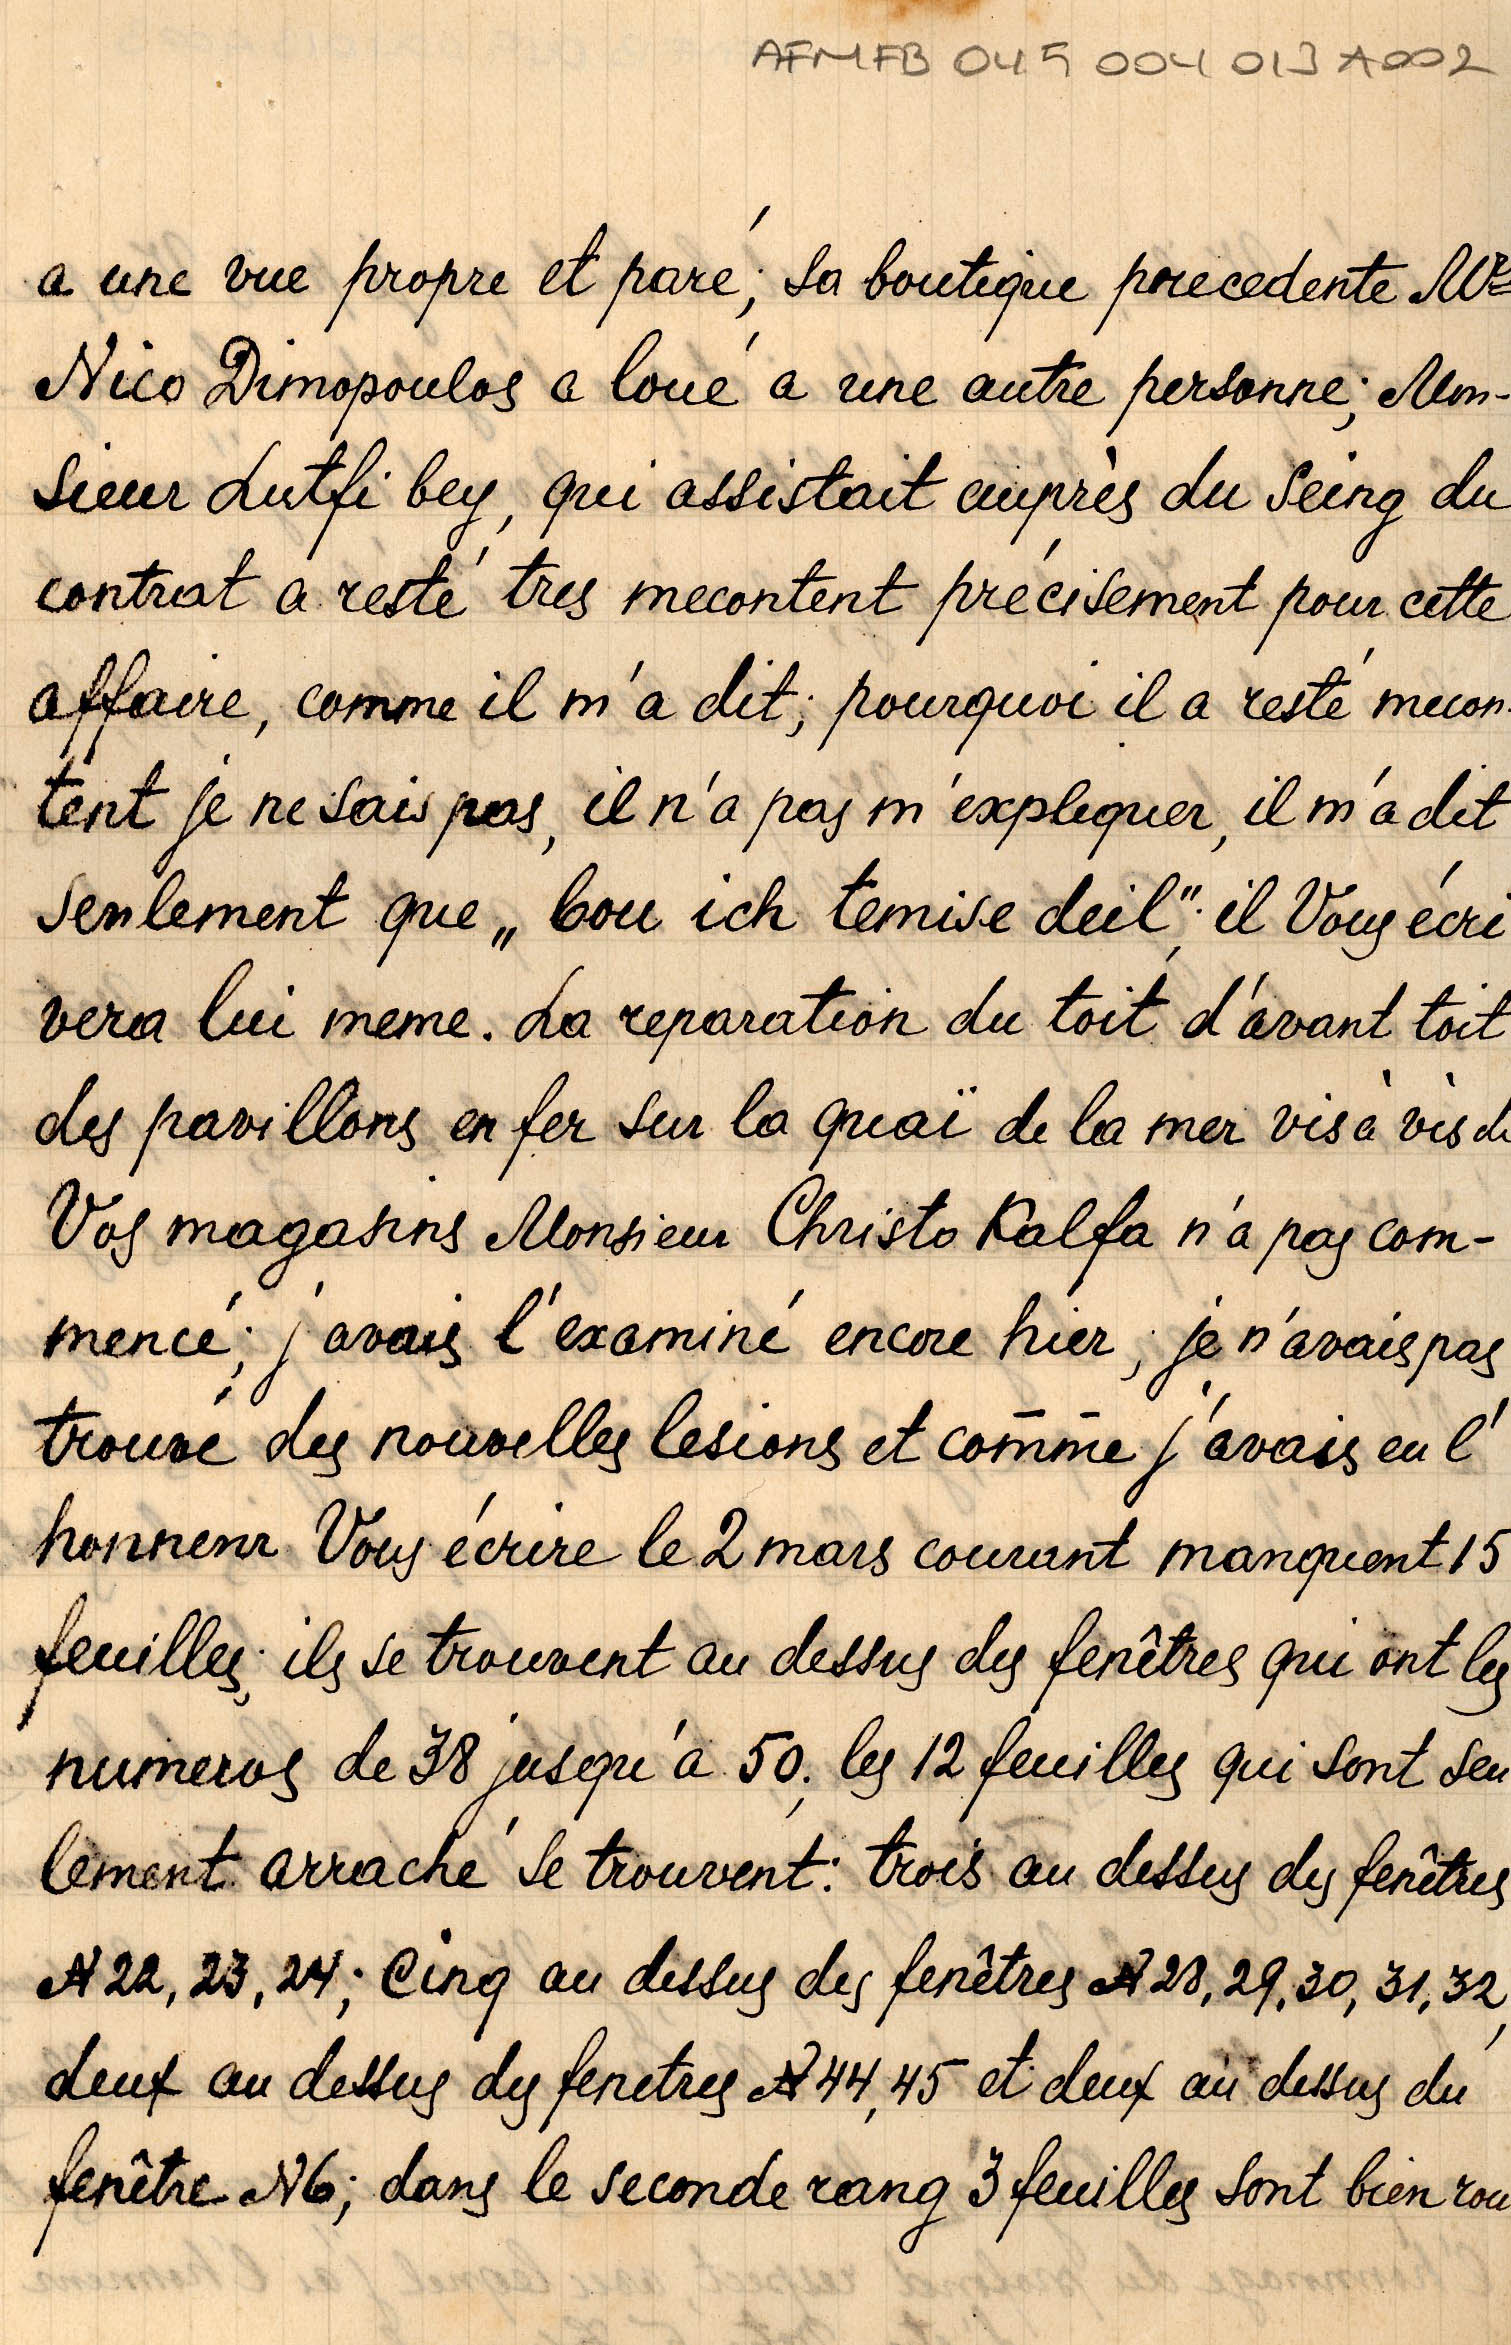 AFMFB 045 004 013 A002
a une vue propre et paré; sa boutique precedente Mr
Nico Dimopoulos a loué a une autre personne; Mon-
sieur Lutfi bey, qui assistait auprès du seing du
contrat a resté tres mecontent précisement pour cette
affaire, comme il m'a dit; pourquoi il a resté mecon-
tent je ne sais pas, il n'a pas m'expliquer, il m'a dit
seulement que „bou ich temise deil"; il Vous écri
vera lui meme. La reparation du toit d'avant toit
des pavillons en fer sur la quaï de la mer vis à vis de
Vos magasins Monsieur Christo Kalfa n'a pas com-
mencé; j'avais l'examiné encore hier; je n'avais pas
trouvé des nouvelles lesions et com̄m̄e j'avais eu l'
honneur Vous écrire le 2 mars courant manquent 15
feuilles; ils se trouvent au dessus des fenêtres qui ont les
numeros de 38 jusqu'a 50; les 12 feuilles qui sont seu
lement arraché se trouvent: trois au dessus des fenêtres
N 22, 23, 24; Cinq au dessus des fenêtres N 28, 29, 30, 31, 32,
deux au dessus des fenetres N 44, 45 et deux au dessus du
fenêtre N6; dans le seconde rang 3 feuilles sont bien rou